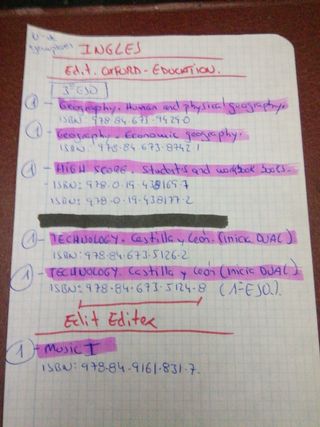 INGLES
Edit. OXFORD-EDUCATION.
3º ESO
1 - Geography. Human and physical geography.
ISBN: 978-84-673-9929-0
1 - Geography. Economic geography.
ISBN: 978-84-673-8742-1
1 - HIGH SCORE. Student's and workbook books.
ISBN: 978-0-19-438169-7
ISBN: 978-0-19-438177-2
1 - TECHNOLOGY. Castilla y León. (Inicia DUAL)
ISBN: 978-84-673-5126-2
1 - TECHNOLOGY. Castilla y León (Inicia DUAL)
ISBN: 978-84-673-5124-8 (1º ESO.)
Edit Editex
1 - Music I
ISBN: 978-84-9161-831-7.